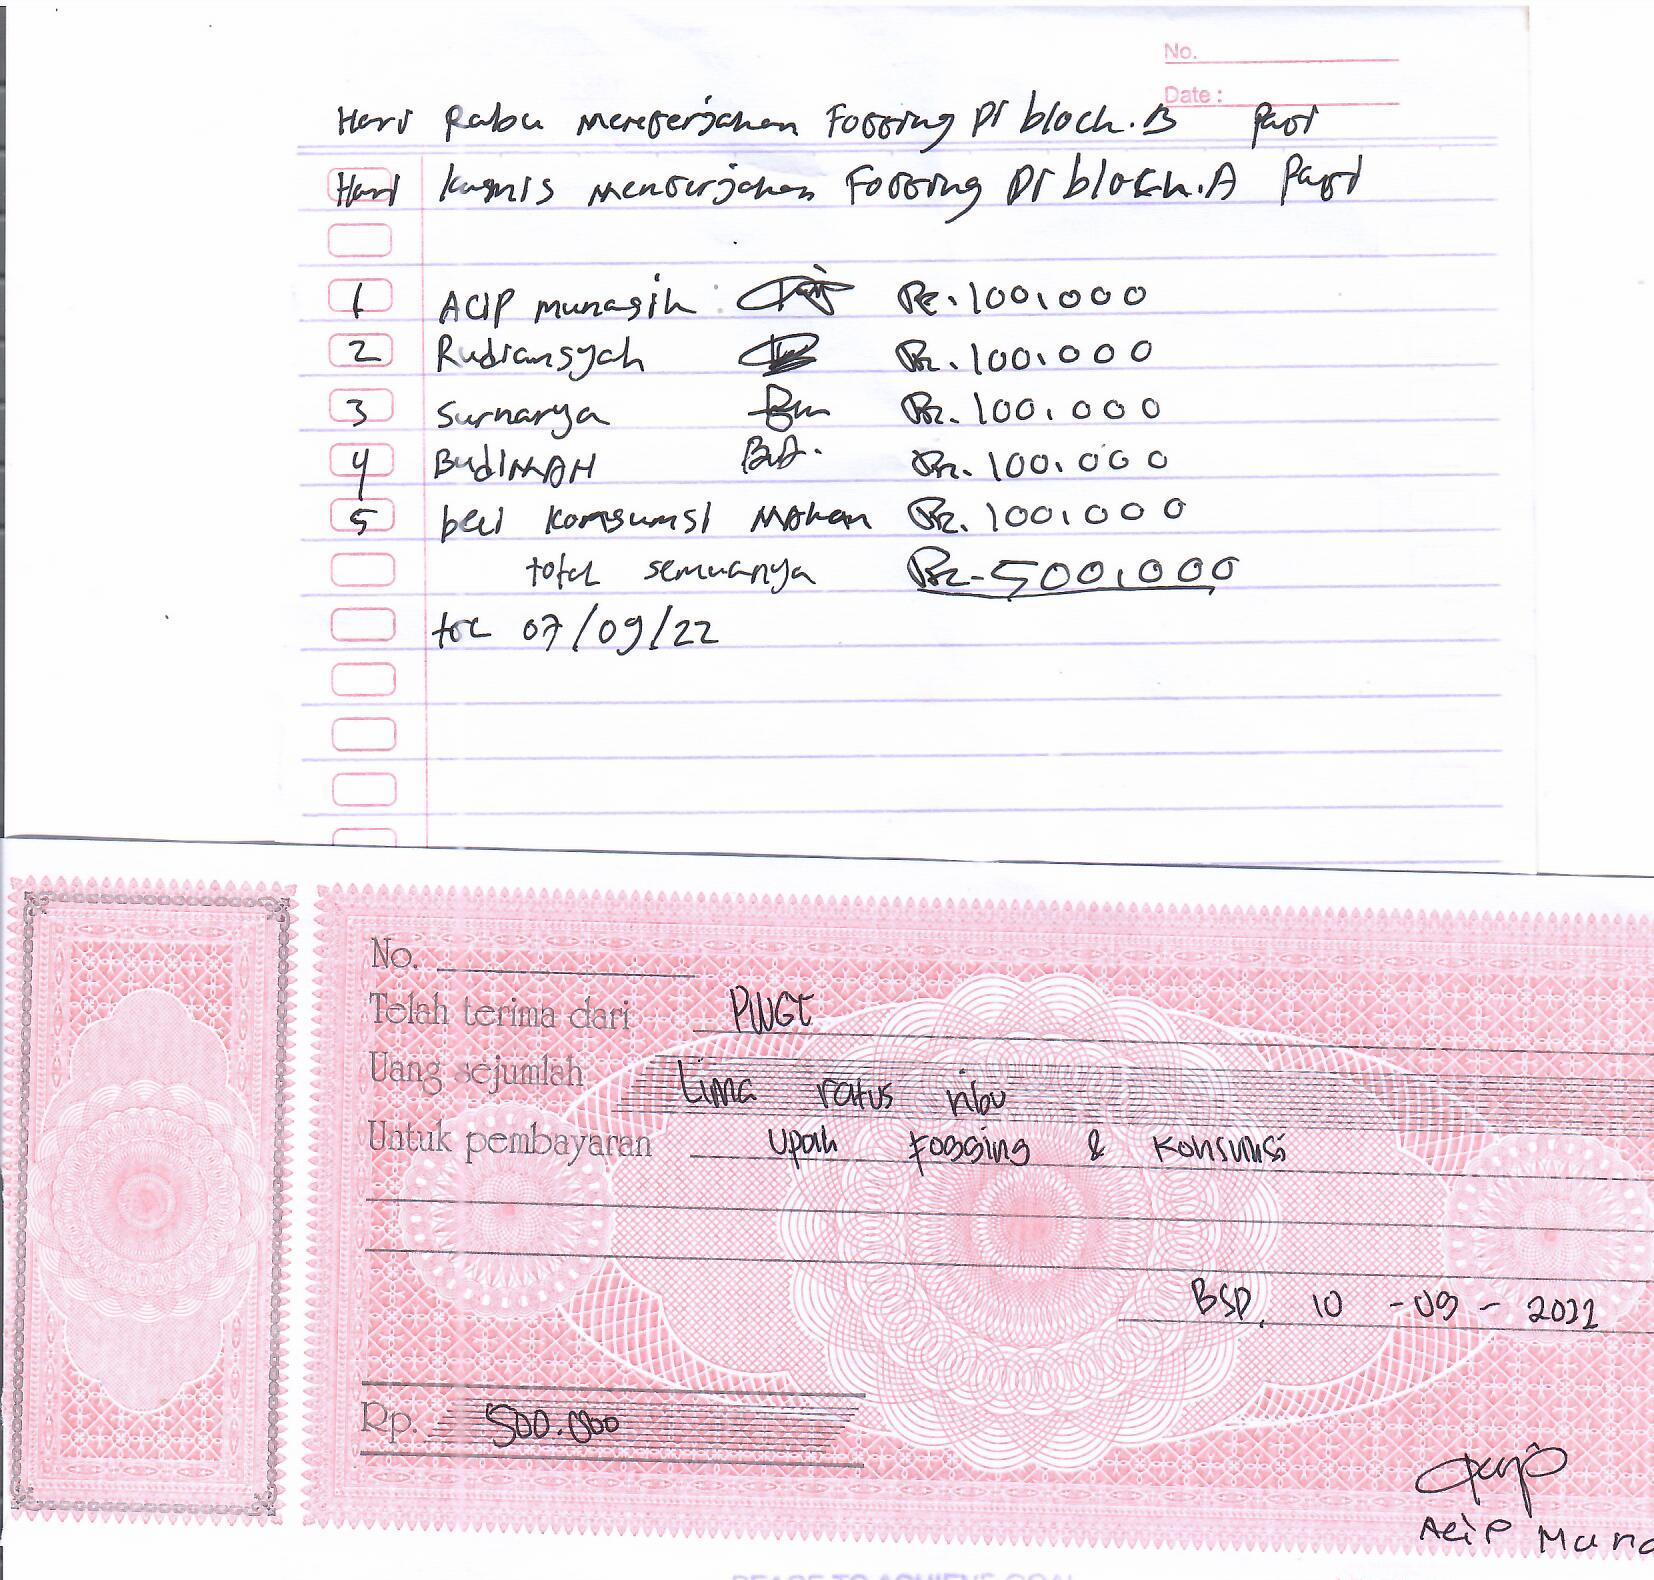 No.
Date :
Hari Rabu mengerjakan Fogging Di block.B Pagi
Hari kamis mengerjakan Fogging Di block.A Pagi
1 ACIP munasih Rp.100.000
2 Rudiansyah Rp.100.000
3 Surnarya Rp.100.000
4 BudiMAH Rp.100.000
5 beli komsumsi Makan Rp.100.000
total semuanya Rp-500.000
07/09/22
No.
Telah terima dari PWGT
Uang sejumlah Lima ratus ribu
Untuk pembayaran Upah Fogging & Konsumsi
BSD, 10 -09- 2022
Rp. 500.000
Acip Muna